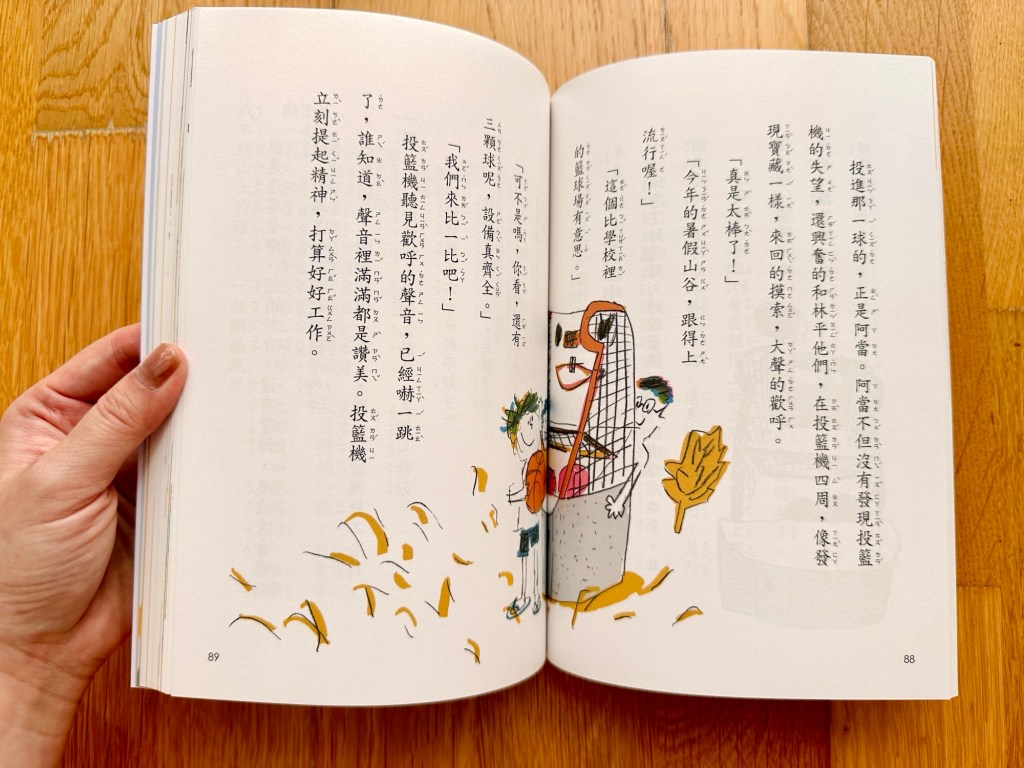 投進那一球的，正是阿當。阿當不但沒有發現投籃
機的失望，還興奮的和林平他們，在投籃機四周，像發
現寶藏一樣，來回的摸索，大聲的歡呼。
「真是太棒了！」
「今年的暑假山谷，跟得上
流行喔！」
「這個比學校裡
的籃球場有意思。」
88
「可不是嗎，你看，還有
三顆球呢，設備真齊全。」
「我們來比一比吧！」
投籃機聽見歡呼的聲音，已經嚇一跳
了，誰知道，聲音裡滿滿都是讚美。投籃機
立刻提起精神，打算好好工作。
89